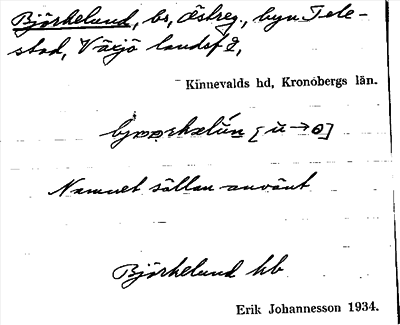 Björkelund, bs, Östreg., byn Tele-
stad, Växjö landsf 2,
Kinnevalds hd, Kronobergs län.
Namnet sällan använt
Björkelund hb
Erik Johannesson 1934.